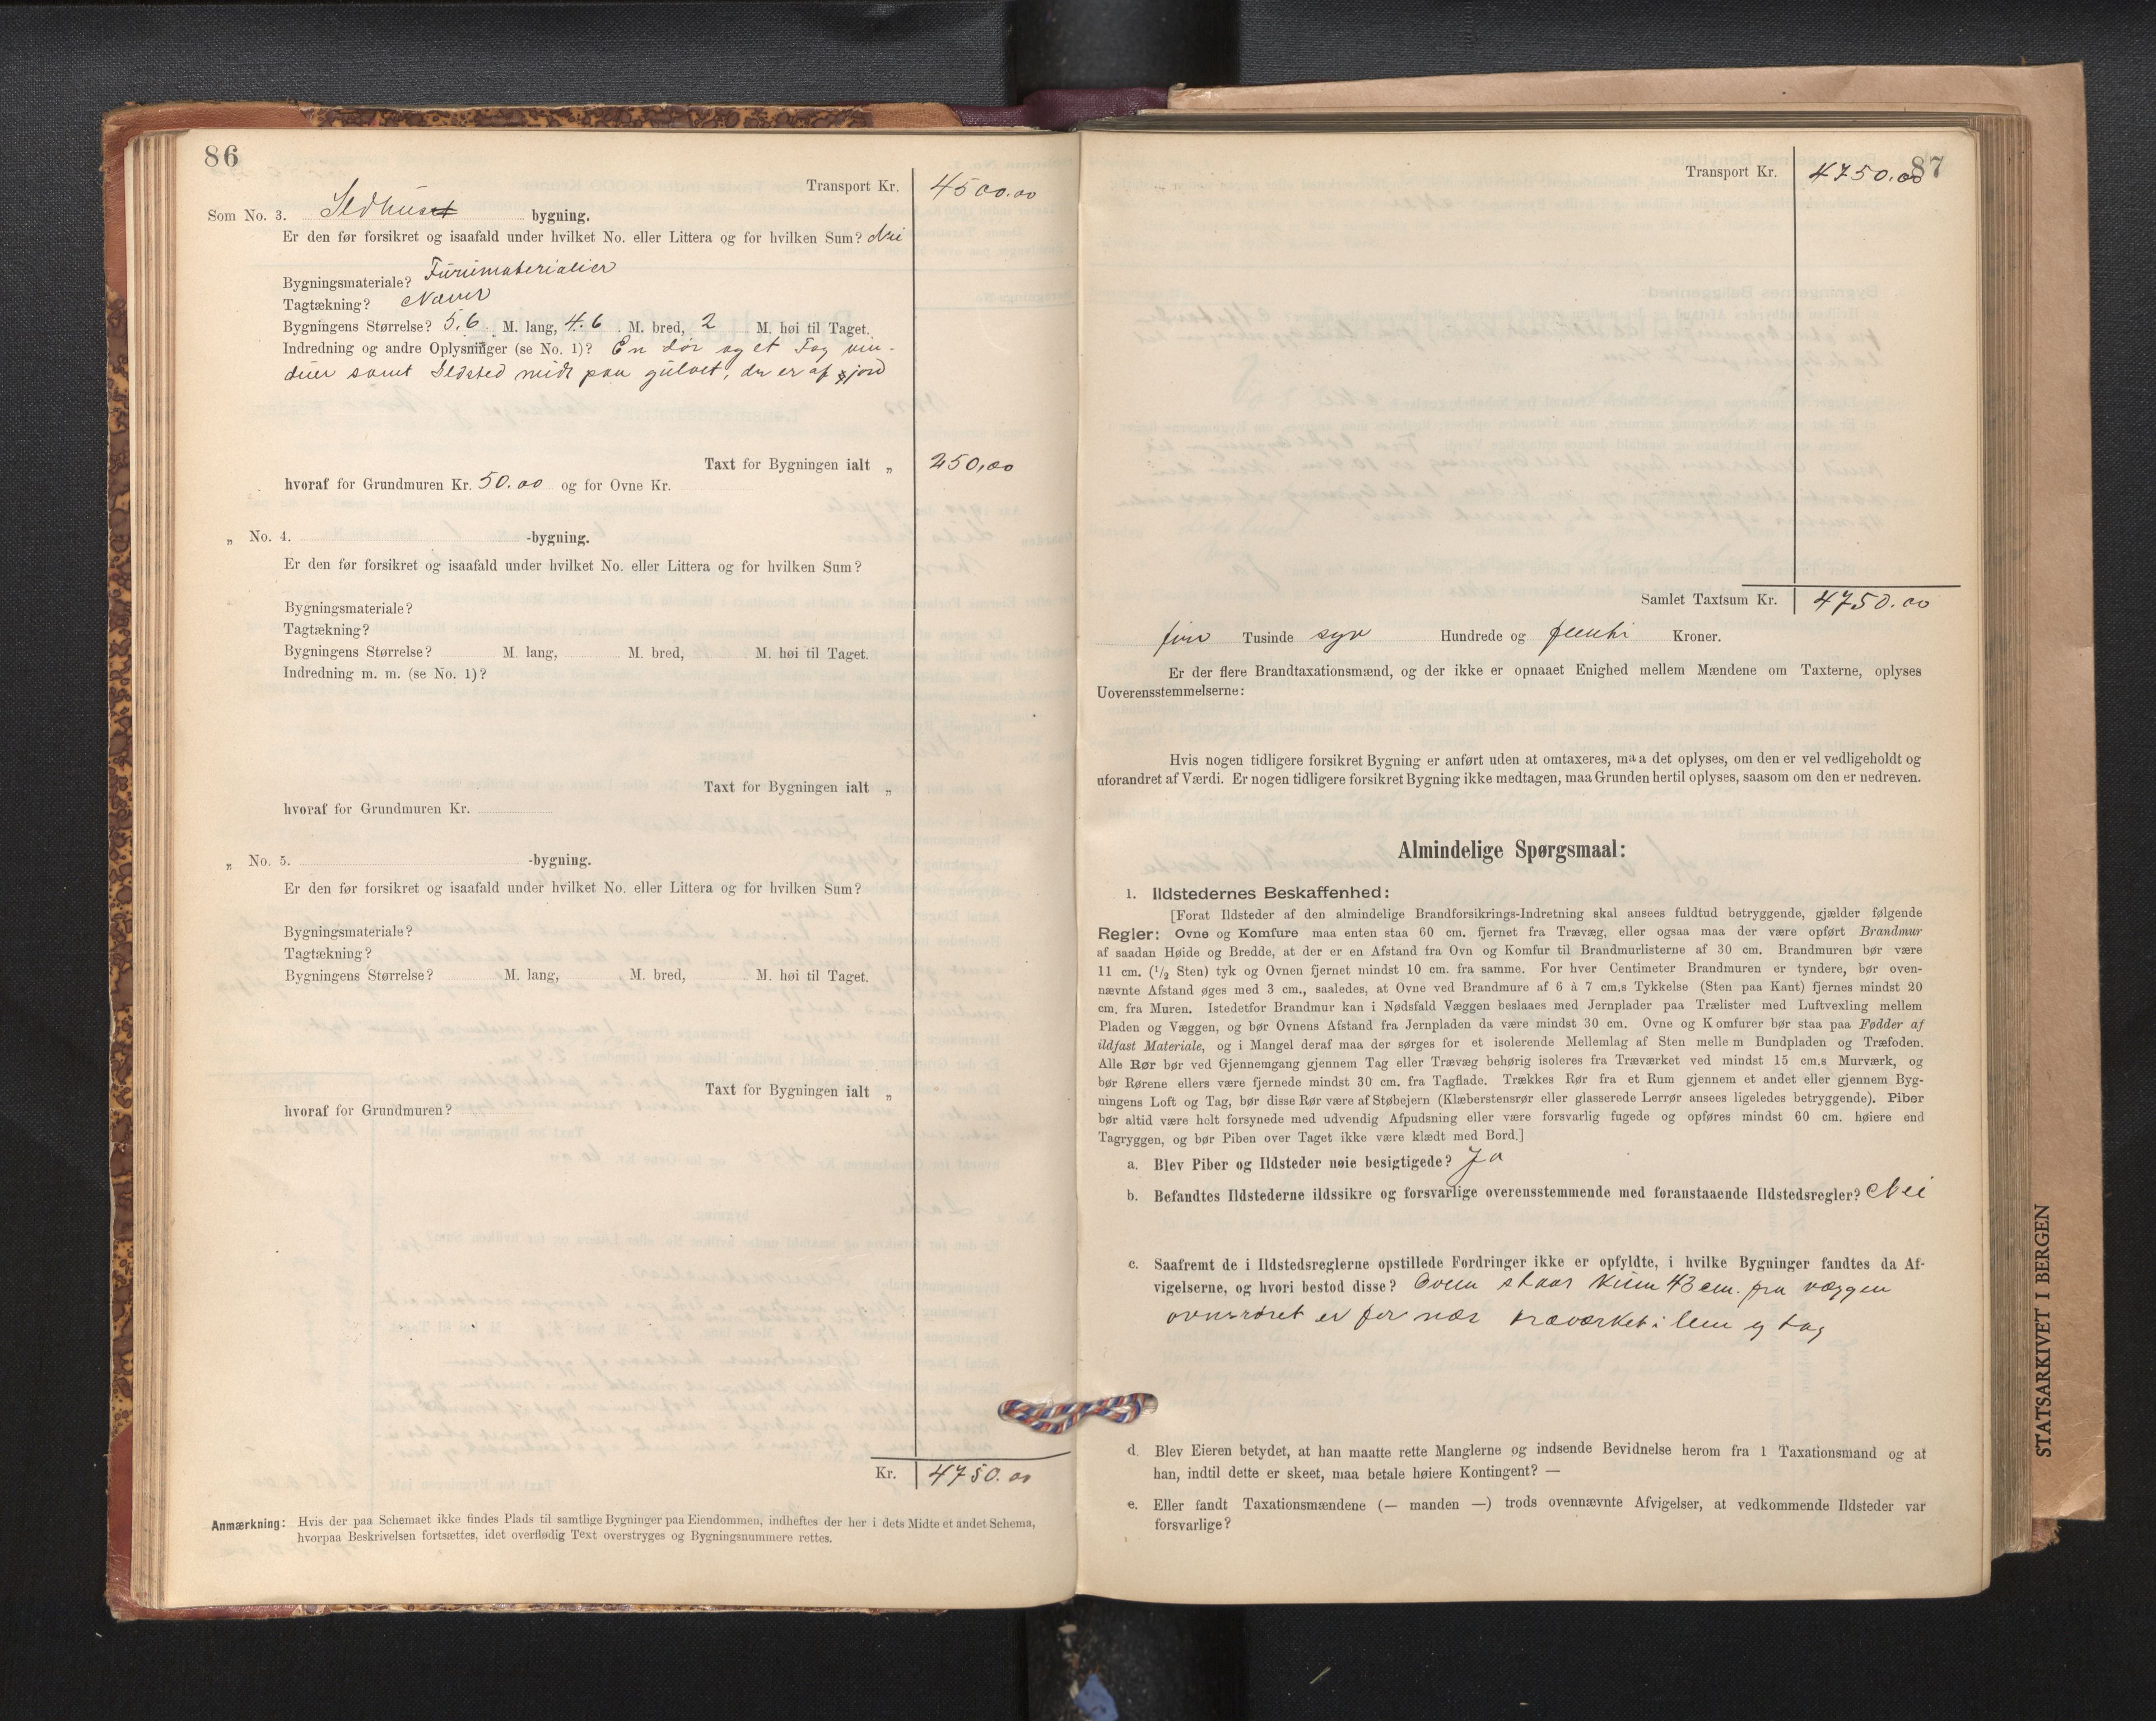 86
Transport Kr. 4500.00
Som No. 3. Ildhuset bygning.
Er den før forsikret og isaafald under hvilket No. eller Littera og for hvilken Sum? Nei
Bygningsmateriale? Furumaterialier
Tagtækning? Næver
Bygningens Størrelse? 5.6 M. lang, 4.6 M. bred, 2 M. høi til Taget.
Indredning og andre Oplysninger (se No. 1)? En dør og et Fag vin-
duer samt Ildsted midt paa gulvet, der er af jord
Taxt for Bygningen ialt „ 250,00
hvoraf for Grundmuren Kr. 50.00 og for Ovne Kr.
„ No. 4. -bygning.
Er den før forsikret og isaafald under hvilket No. eller Littera og for hvilken Sum?
Bygningsmateriale?
Tagtækning?
Bygningens Størrelse? M. lang, M. bred, M. høi til Taget.
Indredning m. m. (se No. 1)?
Taxt for Bygningen ialt „
hvoraf for Grundmuren Kr.
„ No. 5. -bygning.
Er den før forsikret og isaafald under hvilket No. eller Littera og for hvilken Sum?
Bygningsmateriale?
Tagtækning?
Bygningens Størrelse? M. lang, M. bred, M. høi til Taget.
Taxt for Bygningen ialt „
hvoraf for Grundmuren?
Kr. 4750.00
Anmærkning: Hvis der paa Schemaet ikke findes Plads til samtlige Bygninger paa Eiendommen, indheftes der her i dets Midte et andet Schema,
hvorpaa Beskrivelsen fortsættes, idet overflødig Text overstryges og Bygningsnummere rettes.
87
Transport Kr. 4750.00
Samlet Taxtsum Kr. 4750.00
fire Tusinde syv Hundrede og femti Kroner.
Er der flere Brandtaxationsmænd, og der ikke er opnaaet Enighed mellem Mændene om Taxterne, oplyses
Uoverensstemmelserne:
Hvis nogen tidligere forsikret Bygning er anført uden at omtaxeres, maa det oplyses, om den er vel vedligeholdt og
uforandret af Værdi. Er nogen tidligere forsikret Bygning ikke medtagen, maa Grunden hertil oplyses, saasom om den er nedreven.
Almindelige Spørgsmaal:
1. Ildstedernes Beskaffenhed:
[Forat Ildsteder af den almindelige Brandforsikrings-Indretning skal ansees fuldtud betryggende, gjælder følgende
Regler: Ovne og Komfure maa enten staa 60 cm. fjernet fra Trævæg, eller ogsaa maa der være opført Brandmur
af saadan Høide og Bredde, at der er en Afstand fra Ovn og Komfur til Brandmurlisterne af 30 cm. Brandmuren bør være
11 cm. (1/2 Sten) tyk og Ovnen fjernet mindst 10 cm. fra samme. For hver Centimeter Brandmuren er tyndere, bør oven-
nævnte Afstand øges med 3 cm., saaledes, at Ovne ved Brandmure af 6 à 7 cm.s Tykkelse (Sten paa Kant) fjernes mindst 20
cm. fra Muren. Istedetfor Brandmur kan i Nødsfald Væggen beslaaes med Jernplader paa Trælister med Luftvexling mellem
Pladen og Væggen, og bør Ovnens Afstand fra Jernpladen da være mindst 30 cm. Ovne og Komfurer bør staa paa Fødder af
ildfast Materiale, og i Mangel deraf maa der sørges for et isolerende Mellemlag af Sten mellem Bundpladen og Træfoden.
Alle Rør bør ved Gjennemgang gjennem Tag eller Trævæg behørig isoleres fra Træværket ved mindst 15 cm.s Murværk, og
bør Rørene ellers være fjernede mindst 30 cm. fra Tagflade. Trækkes Rør fra et Rum gjennem et andet eller gjennem Byg-
ningens Loft og Tag, bør disse Rør være af Støbejern (Klæberstensrør eller glasserede Lerrør ansees ligeledes betryggende). Piber
bør altid være helt forsynede med udvendig Afpudsning eller være forsvarlig fugede og opføres mindst 60 cm. høiere end
Tagryggen, og bør Piben over Taget ikke være klædt med Bord.]
a. Blev Piber og Ildsteder nøie besigtigede? Ja
b. Befandtes Ildstederne ildssikre og forsvarlige overensstemmende med foranstaaende Ildstedsregler? Nei
c. Saafremt de i Ildstedsreglerne opstillede Fordringer ikke er opfyldte, i hvilke Bygninger fandtes da Af-
vigelserne, og hvori bestod disse? Ovnen staar kun 43 cm. fra væggen
ovnsrøret er for nær træværket i lem og tag
d. Blev Eieren betydet, at han maatte rette Manglerne og indsende Bevidnelse herom fra 1 Taxationsmand og at
han, indtil dette er skeet, maa betale høiere Kontingent? —
e. Eller fandt Taxationsmændene (— manden —) trods ovennævnte Afvigelser, at vedkommende Ildsteder var
forsvarlige?
STATSARKIVET I BERGEN